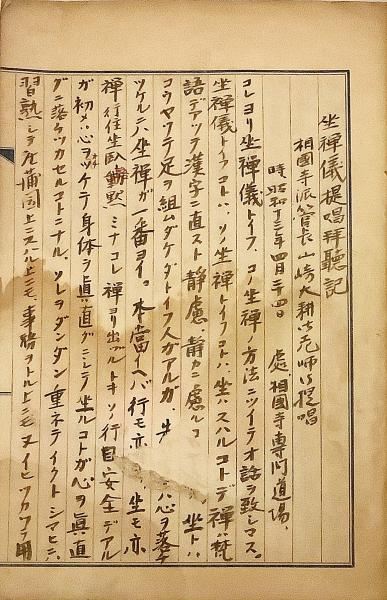 坐禅儀提唱拝聽記
相國寺派管長山崎大耕老師御提唱
時、昭和十三年四月二十四日 處、相國寺専門道場、
コレヨリ坐禅儀トイフ、コノ坐禅ノ方法ニツイテオ話ヲ致シマス。
坐禅儀トイフコトハ、ソノ坐禅トイフコトハ、坐ハスハルコトデ禅ハ梵
語デアツテ漢字ニ直スト静慮、静カニ慮ルコ 坐トハ
コウヤツテ足ヲ組ムダケダトイフ人ガアルガ、 心ヲ落チ
ツケルニハ坐禅ガ一番ヨイ。本當イヘバ行モ亦 坐モ亦
禅行住坐臥 黙ミナコレ禅ヨリ出ヅルトキソノ行目安全デアル
ガ初メハ心ヲツケテ身体ヲ真直グニシテ坐ルコトガ心ヲ真直
グニ落チツカセルコトニナル、ソレヲダンダン重ネテイクトシマヒニ
習熟シテ 蒲團上ニスハル上ニモ、事務ヲトル上ニモ ツカフ用